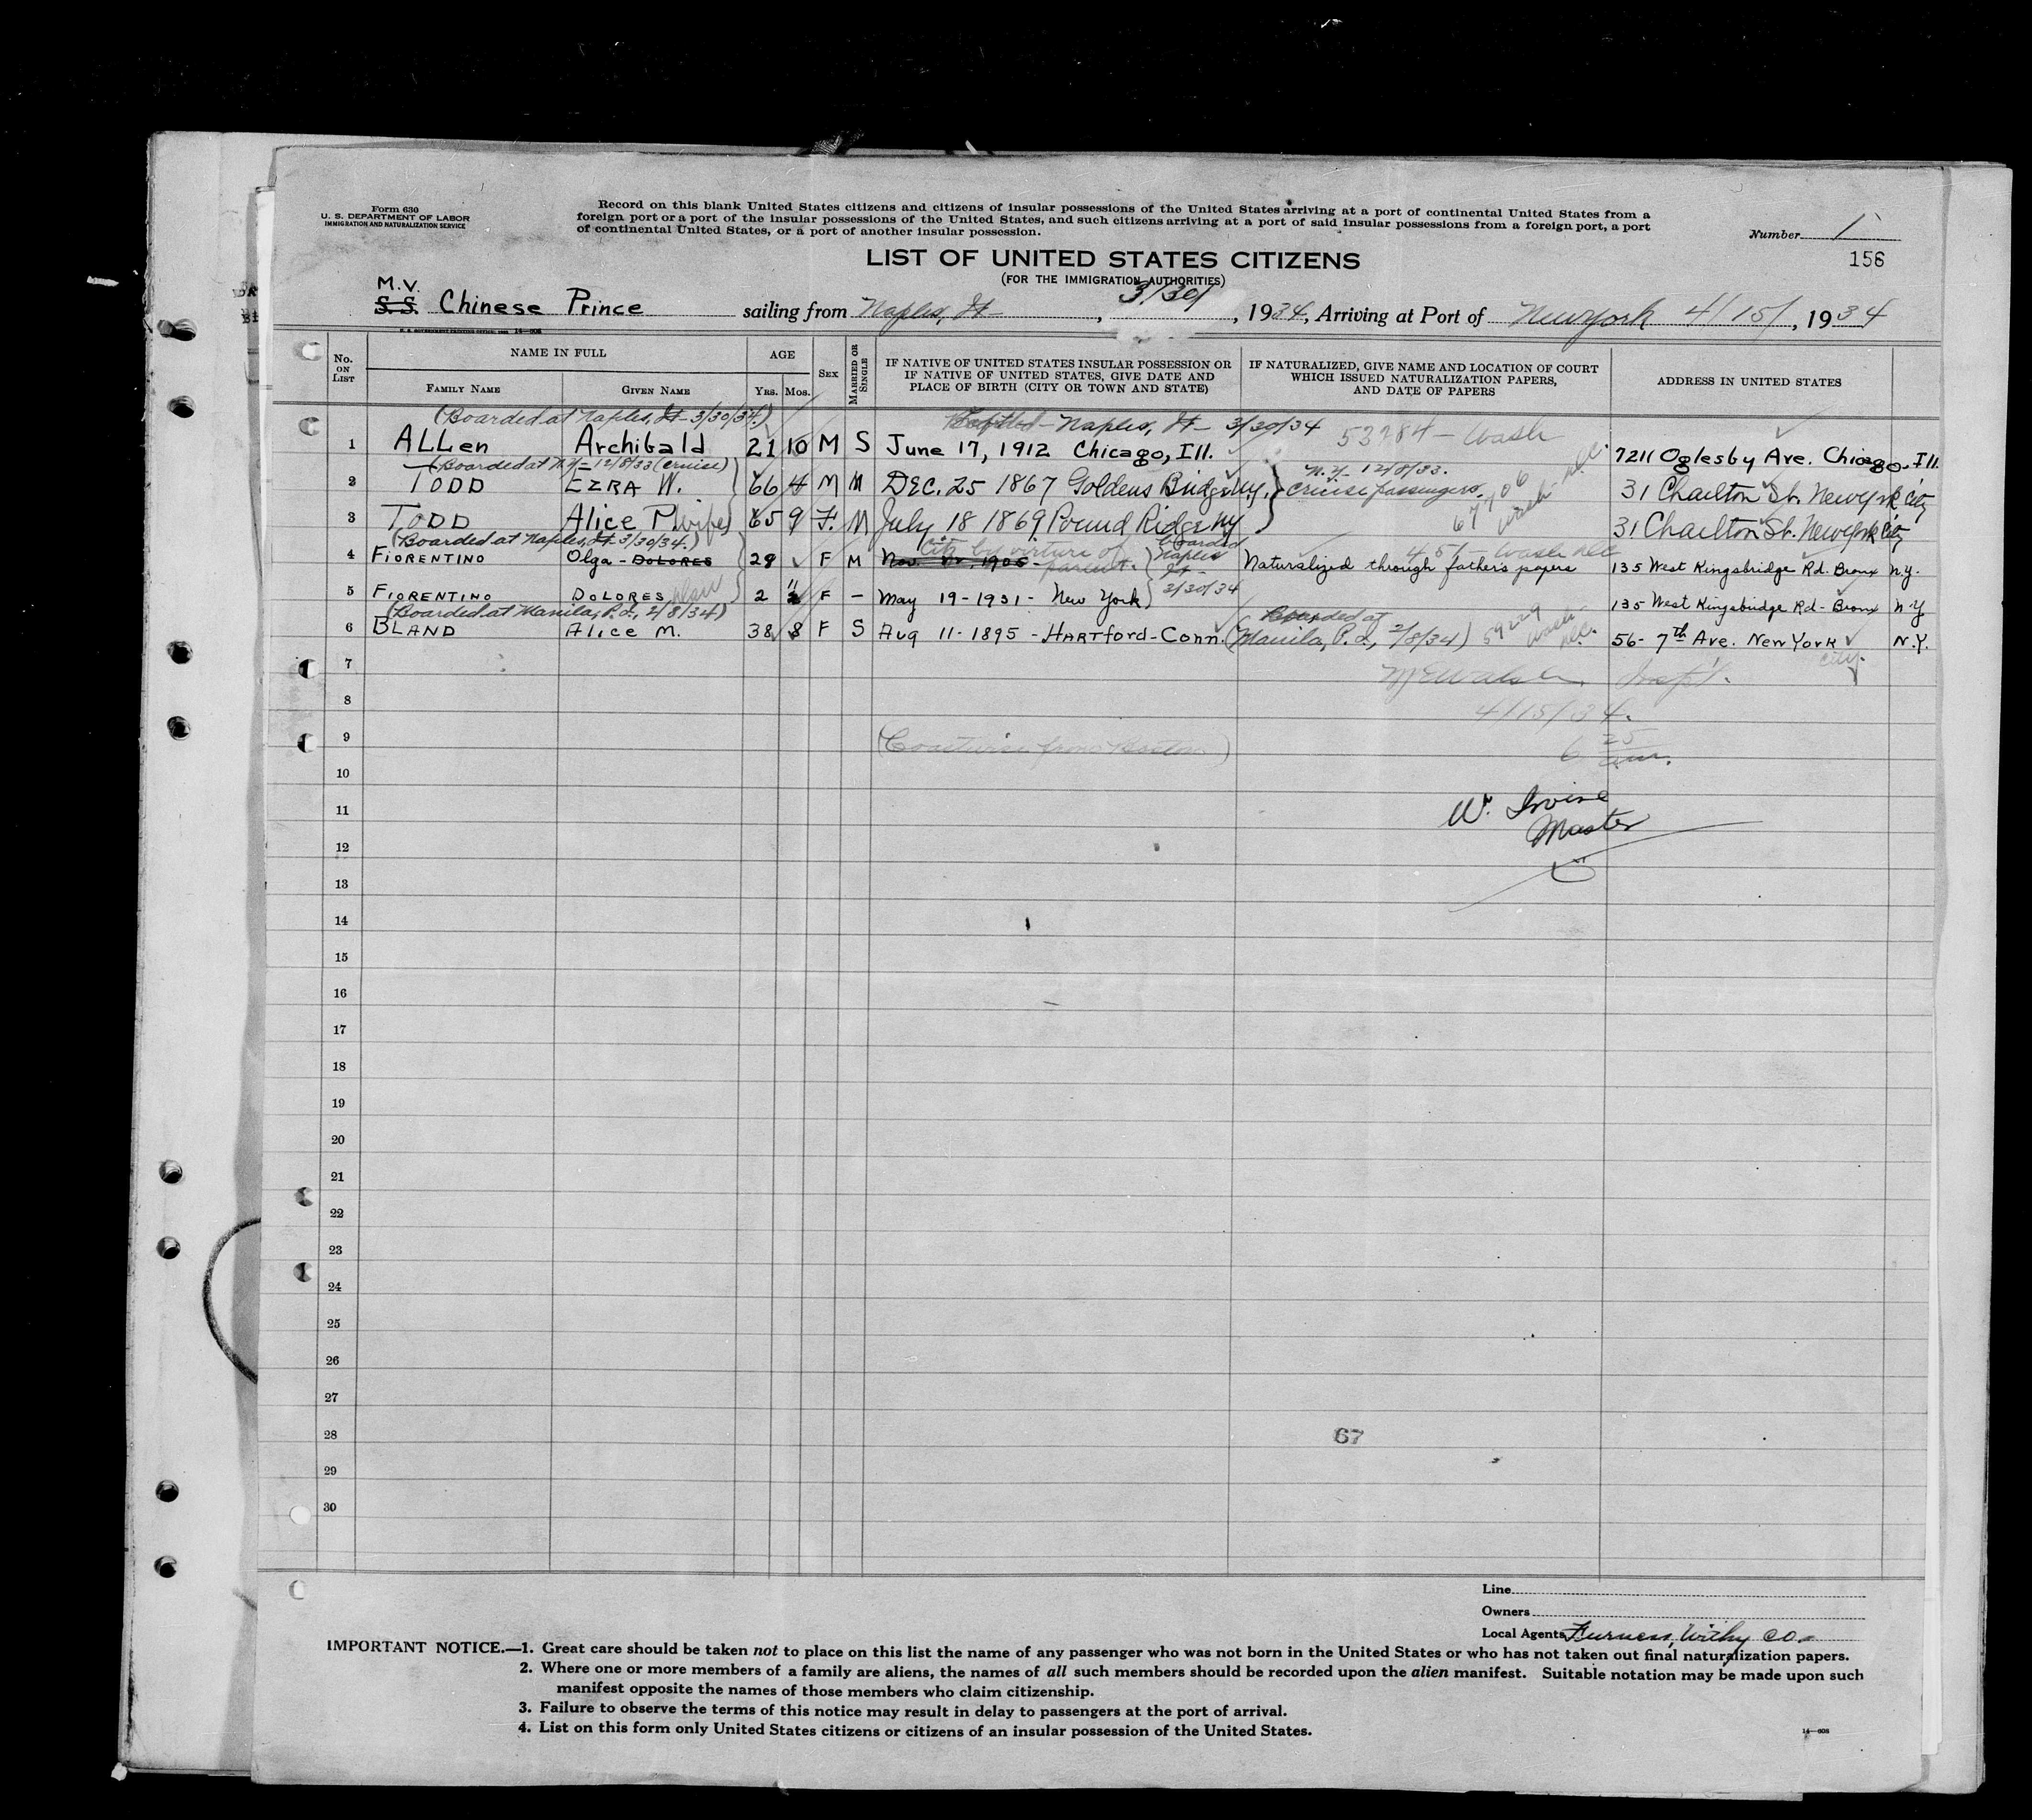 Form 630
U. S. DEPARTMENT OF LABOR
IMMIGRATION AND NATURALIZATION SERVICE
Record on this blank United States citizens and citizens of insular possessions of the United States arriving at a port of continental United States from a
foreign port or a port of the insular possessions of the United States, and such citizens arriving at a port of said insular possessions from a foreign port, a port
of continental United States, or a port of another insular possession.
Number 1
156
LIST OF UNITED STATES CITIZENS
(FOR THE IMMIGRATION AUTHORITIES)
M.V.
S.S. Chinese Prince sailing from Naples, It- , 3/30/ , 1934, Arriving at Port of New York 4/15/, 1934
U. S. GOVERNMENT PRINTING OFFICE: 14-608
No. ON LIST NAME IN FULL AGE SEX MARRIED OR SINGLE IF NATIVE OF UNITED STATES INSULAR POSSESSION OR IF NATIVE OF UNITED STATES, GIVE DATE AND PLACE OF BIRTH (CITY OR TOWN AND STATE) IF NATURALIZED, GIVE NAME AND LOCATION OF COURT WHICH ISSUED NATURALIZATION PAPERS, AND DATE OF PAPERS ADDRESS IN UNITED STATES
FAMILY NAME GIVEN NAME YRS. MOS.
(Boarded at Naples, It-3/30/34.) Naples, It- 3/30/34 53984 - Wash
1 ALLen Archibald 21 10 M S June 17, 1912 Chicago, Ill. 7211 Oglesby Ave. Chicago. Ill.
(Boarded at N.Y- 12/8/33 (cruise) N.Y- 12/8/33.
2 TODD EZRA W. 66 4 M M DEC. 25 1867 Goldens Bridge N.Y. Cruise passengers. 67706 Wash. D.C. 31 Charlton St. New York City
3 TODD Alice M (wife) 65 9 F. M July 18 1869 Pound Ridge NY 31 Charlton St. New York City
(Boarded at Naples, It. 3/30/34.) Citz by virture of parent. Boarded Naples It- 3/30/34
4 FIORENTINO Olga - DOLORES 29 F M Nov. 1905 - Naturalized through father's papers 135 West Kingsbridge Rd. Bronx N.Y.
5 FIORENTINO DOLORES 2 11 F - May 19-1931 - New York 135 West Kingsbridge Rd- Bronx N Y
(Boarded at Manila, P.I., 2/8/34) Boarded at
6 BLAND Alice M. 38 8 F S Aug 11-1895 - HARTford-Conn. (Manila, P.I., 2/8/34) 59229 Wash. D.C. 56- 7th Ave. New York City. N.Y.
7 Insp't.
8 4/15/34.
9 (Coastwise from Boston) 6 25 am.
10
11 W. Irvine
12 Master
13
14
15
16
17
18
19
20
21
22
23
24
25
26
27
28 67
29
30
Line
Owners
Local Agents Furness, Withy Co.
IMPORTANT NOTICE.—1. Great care should be taken not to place on this list the name of any passenger who was not born in the United States or who has not taken out final naturalization papers.
2. Where one or more members of a family are aliens, the names of all such members should be recorded upon the alien manifest. Suitable notation may be made upon such
manifest opposite the names of those members who claim citizenship.
3. Failure to observe the terms of this notice may result in delay to passengers at the port of arrival.
4. List on this form only United States citizens or citizens of an insular possession of the United States.
14-608